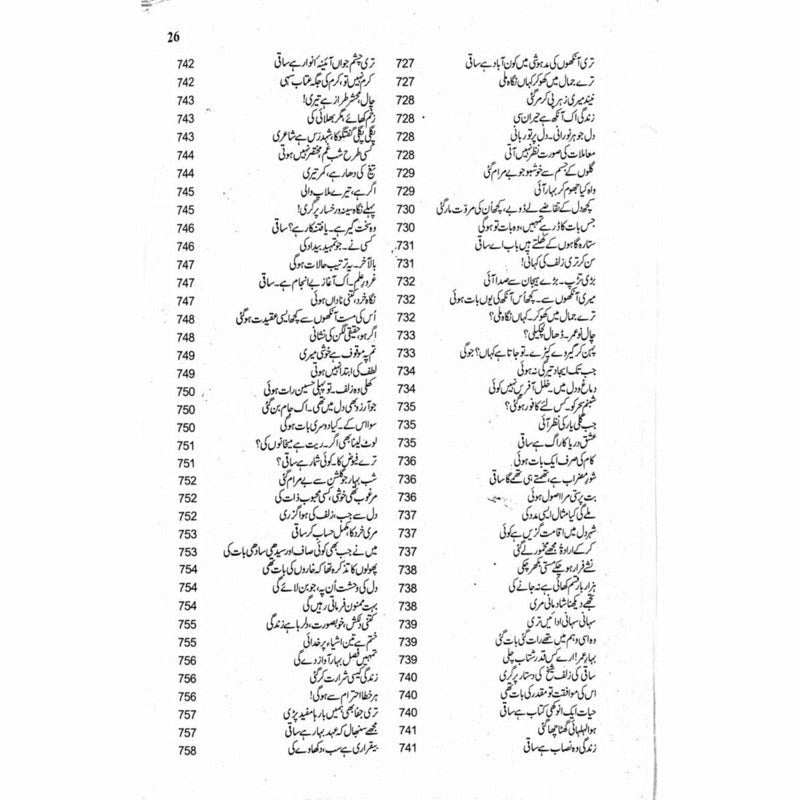 26
تری آنکھوں کی مدہوشی میں کون آباد ہے ساقی 727
ترے جمال میں کھو کر کہاں نگاہ ملی 727
نیند میری زہر پی کر مر گئی 728
زندگی اک آنکھ ہے حیران سی 728
دل جوہر نورانی۔ دل پرتو ربانی 728
معاملات کی صورت نظر نہیں آتی 728
گلوں کے جسم سے خوشبو جو بے مرام گئی 729
واہ کیا جھوم کر بہار آئی 729
کچھ دل کے تقاضے لے ڈوبے، کچھ اُن کی مروّت مار گئی 730
جس بات کا ڈر ہے تمہیں، وہ بات تو ہوگی 730
ستارہ گاہوں کے کھلتے ہیں باب اے ساقی 731
سن کر تری زلف کی کہانی! 731
بڑی تڑپ۔ بڑے ہیجان سے صدا آئی 732
میری آنکھوں سے۔ کچھ اُس آنکھ کی یوں بات ہوئی 732
ترے جمال میں کھو کر۔ کہاں نگاہ ملی؟ 732
چال نوعمر۔ ڈھال چکیلی؟ 733
پہن کر گیروے کپڑے۔ تو جاتا ہے کہاں؟ جوگی 733
جب تک ایجاد تیرگی نہ ہوئی 734
دماغ و دل میں۔ خلل آفریں نہیں کوئی 734
شبنم سحر کو۔ کس لئے کافور ہو گئی؟ 735
جب گلی یار کی نظر آئی 735
عشق دریا کا راگ ہے ساقی 735
کام کی صرف ایک بات ہوئی 736
شور مضراب ہے، تھمتے ہی تھمے گا ساقی 736
بت پرستی مرا اصول ہوئی 736
ملے گی کیا مثال ایسی مدد کی 737
شہر دل میں اقامت گزیں ہے کوئی 737
کر کے ارادۃً مجھے مخمور لے گئی 737
نشے فرار ہو چکے مستی بکھر چکی 738
ہزار بار قسم کھائی ہے نہ جانے کی 738
تجھے دیکھنا شادمانی مری 738
سہانی سہانی ادائیں تری 739
وہ اسی وہم میں تھے رات گئی بات گئی 739
بہارِ عمر! ارے کس قدر شتاب چلی 739
ساقی کی زلف شیخ کی دستار پر گری 740
اس کی موافقت تو مقدر کی بات تھی 740
حیات ایک انوکھی کتاب ہے ساقی 740
ہوا لہلہائی گھٹا چھا گئی 741
زندگی وہ نصاب ہے ساقی 741
تری چشم جواں آئینہ انوار ہے ساقی 742
کرم نہیں تو، کرم کی جگہ عتاب سہی 742
چال، محشر طراز ہے تیری! 743
زخم کھائے، مگر بھلائی کی 743
پگلی پگلی گفتگو کا، شہد رَس ہے شاعری 743
کسی طرح شب غم مختصر نہیں ہوتی 744
تیغ کی دھار ہے، کمر تیری 744
اگر ہے، تیرے ملاپ والی 745
پہلے نگاہ سینہ و رخسار پر گری! 745
وہ سخت گیر ہے۔ یا فتنہ کار ہے؟ ساقی 746
کسی نے۔ جو تمہید بیداد کی 746
بالآخر۔ یہ ترتیب حالات ہوگی 747
غرورِ علم۔ اک آغاز بے انجام ہے۔ ساقی 747
نگاہ خرد، کتنی ناداں ہوئی 747
اُس کی مست آنکھوں سے کچھ ایسی عقیدت ہو گئی 748
اگر ہو، حقیقی لگن کی نشانی 748
تم پہ موقوف ہے خوشی میری 749
لطف کی ابتدا نہیں ہوتی 749
کھلی وہ زلف۔ تو پہلی حسین رات ہوئی 750
جو آرزو بھی دل میں تھی۔ اک جام بن گئی 750
سوا اس کے۔ کیا دوسری بات ہوگی 750
لوٹ لینا بھی اگر۔ ریت ہے میخانوں کی؟ 751
ترے فیوض کا۔ کوئی شمار ہے ساقی؟ 751
شب بہار جو گلشن سے بے مرام گئی 752
مرغوب تھی خوشی، کسی محبوب ذات کی 752
دل سے جب، زلف کی ہوا گزری 752
مری خرد کا مکمل حساب کر ساقی 753
میں نے جب بھی کوئی صاف اور سیدھی سادھی بات کی 753
پھولوں کا تذکرہ تھا کہ خاروں کی بات تھی 754
دل کی وحشت اُن پہ، جو بن لائے گی 754
بہت ممنون فرماتی رہیں گی 754
کتنی دلکش، خوبصورت، دلربا ہے زندگی 755
ختم ہے تین اشیاء پر خدائی 755
تمہیں فصل بہار آواز دے گی 756
زندگی کیسی شرارت کر گئی 756
ہر خطا احترام سے ہوگی! 756
تری جفا بھی ہمیں بارہا مفید پڑی 757
مجھے سنبھال کہ عہد بہار ہے ساقی 757
بیقراری ہے سب، دکھاوے کی 758